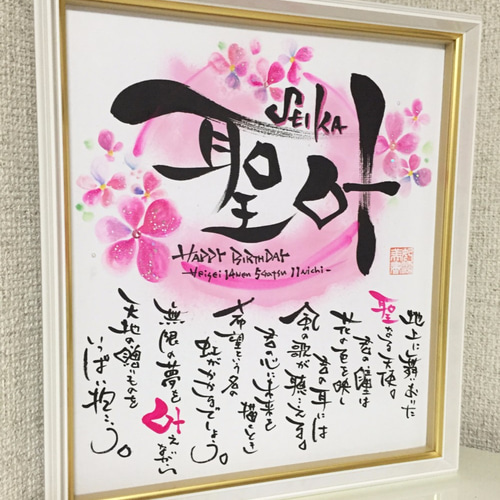 SEIKA
聖叶
HAPPY BIRTHDAY
-Heisei 14nen 5gatsu 11nichi-
地上に舞いおりた
聖なる天使。
君の瞳は
花の色を映し
君の耳には
風の歌が聴こえる。
君の心に未来を描くとき
希望という名の
虹がかかるでしょう。
無限の夢を叶えながら
天地の贈りものを
いっぱい抱こう。